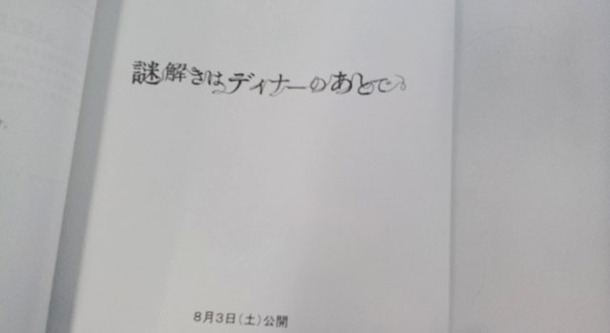 謎解きはディナーのあとで
8月3日(土)公開